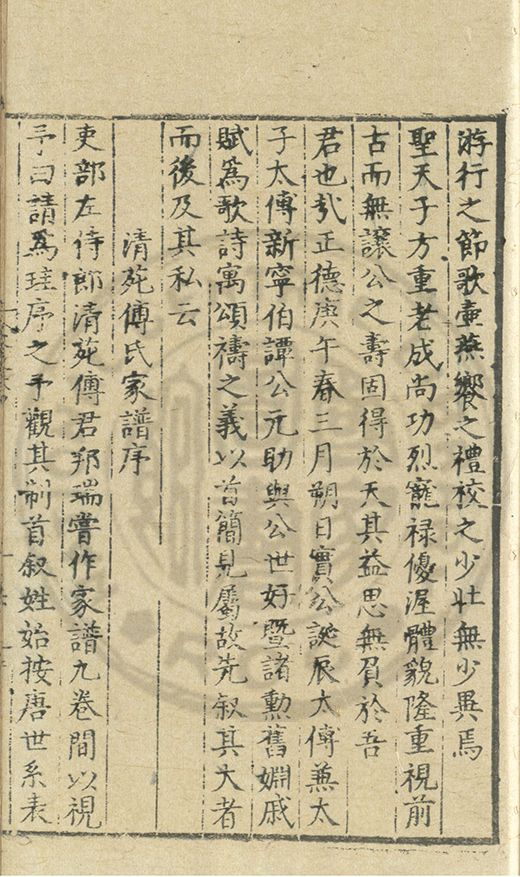 游行之節歌壷燕饗之禮校之少壯無少異焉
聖天子方重老成尚功烈寵禄優渥體貌隆重視前
古而無讓公之壽固得於天其益思無負於吾
君也㢤正德庚午春三月朔日實公誕辰太傅兼太
子太傅新寧伯譚公元助與公世好暨諸勳舊婣戚
賦為歌詩寓頌禱之義以首簡見屬故先叙其大者
而後及其私云
清苑傅氏家譜序
吏部左侍郎清苑傅君邦瑞嘗作家譜九卷間以視
予曰請為珪序之予觀其制首叙姓始按唐世系表